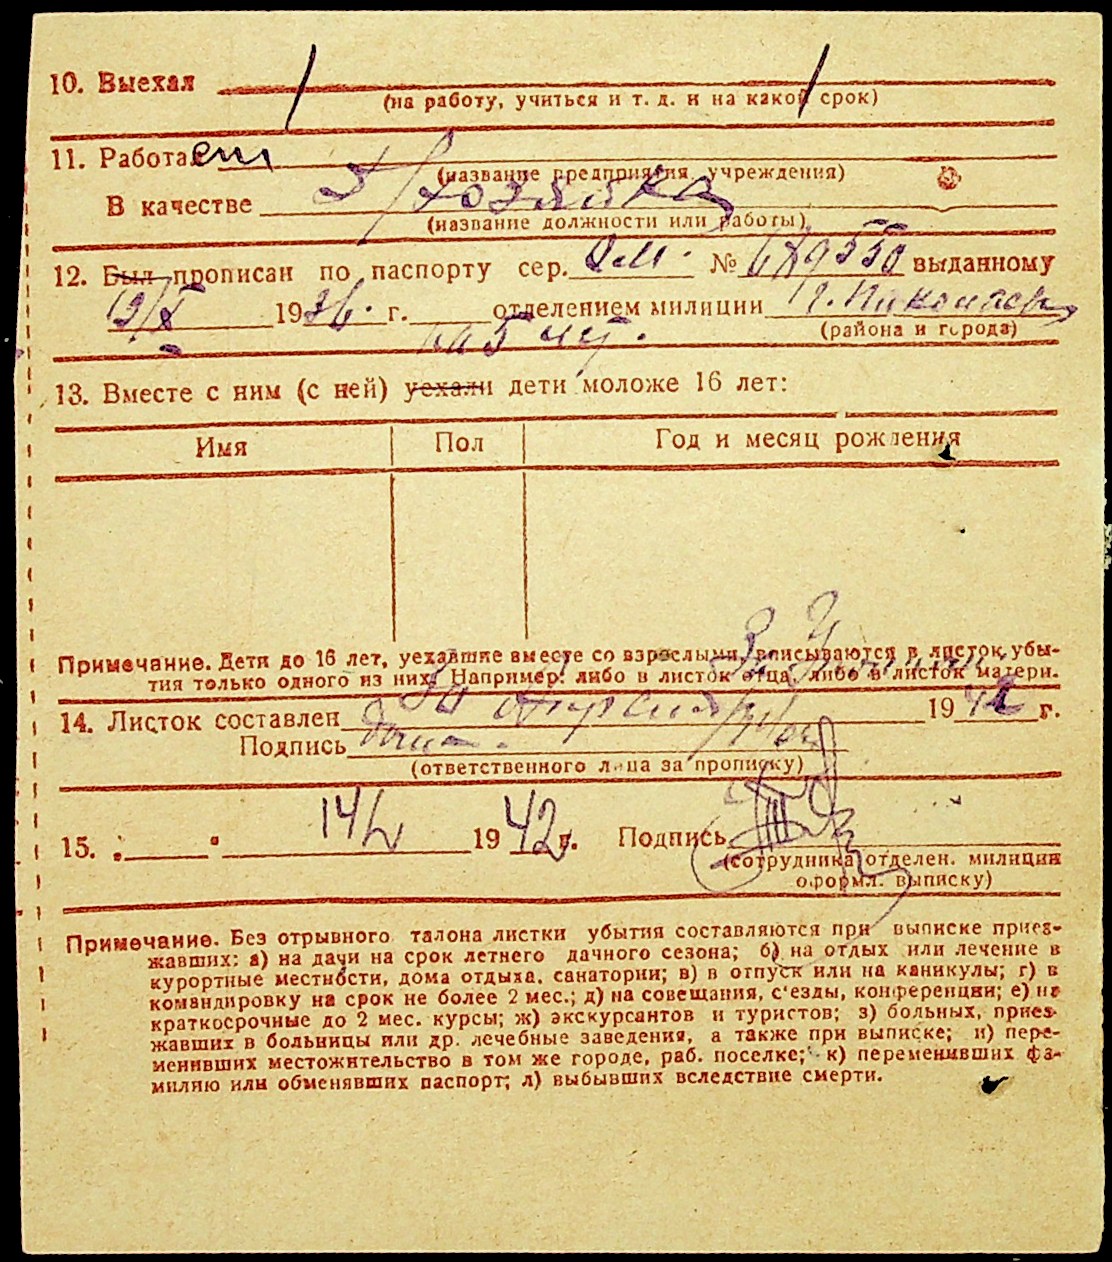 10. Выехал
(на работу, учиться и т. д. и на какой срок)
11. Работает
(название предприятия, учреждения)
В качестве Д/хозяйка
(название должности или работы)
12. Был прописан по паспорту сер. № 689550 выданному
13/X 1936 г. отделением милиции г. Николаев
(района и города)
на 5 лет.
13. Вместе с ним (с ней) уехали дети моложе 16 лет:
Имя Пол Год и месяц рождения
Примечание. Дети до 16 лет, уехавшие вместе со взрослыми, вписываются в листок убы-
тия только одного из них. Например: либо в листок отца, либо в листок матери.
14. Листок составлен 1942 г.
Подпись
(ответственного лица за прописку)
15. 14/ 1942 г. Подпись
(сотрудника отделен. милиции
оформл. выписку)
Примечание. Без отрывного талона листки убытия составляются при выписке приез-
жавших: а) на дачи на срок летнего дачного сезона; б) на отдых или лечение в
курортные местности, дома отдыха, санатории; в) в отпуск или на каникулы; г) в
командировку на срок не более 2 мес.; д) на совещания, с'езды, конференции; е) на
краткосрочные до 2 мес. курсы; ж) экскурсантов и туристов; з) больных, приез-
жавших в больницы или др. лечебные заведения, а также при выписке; и) пере-
менивших местожительство в том же городе, раб. поселке; к) переменивших фа-
милию или обменявших паспорт; л) выбывших вследствие смерти.